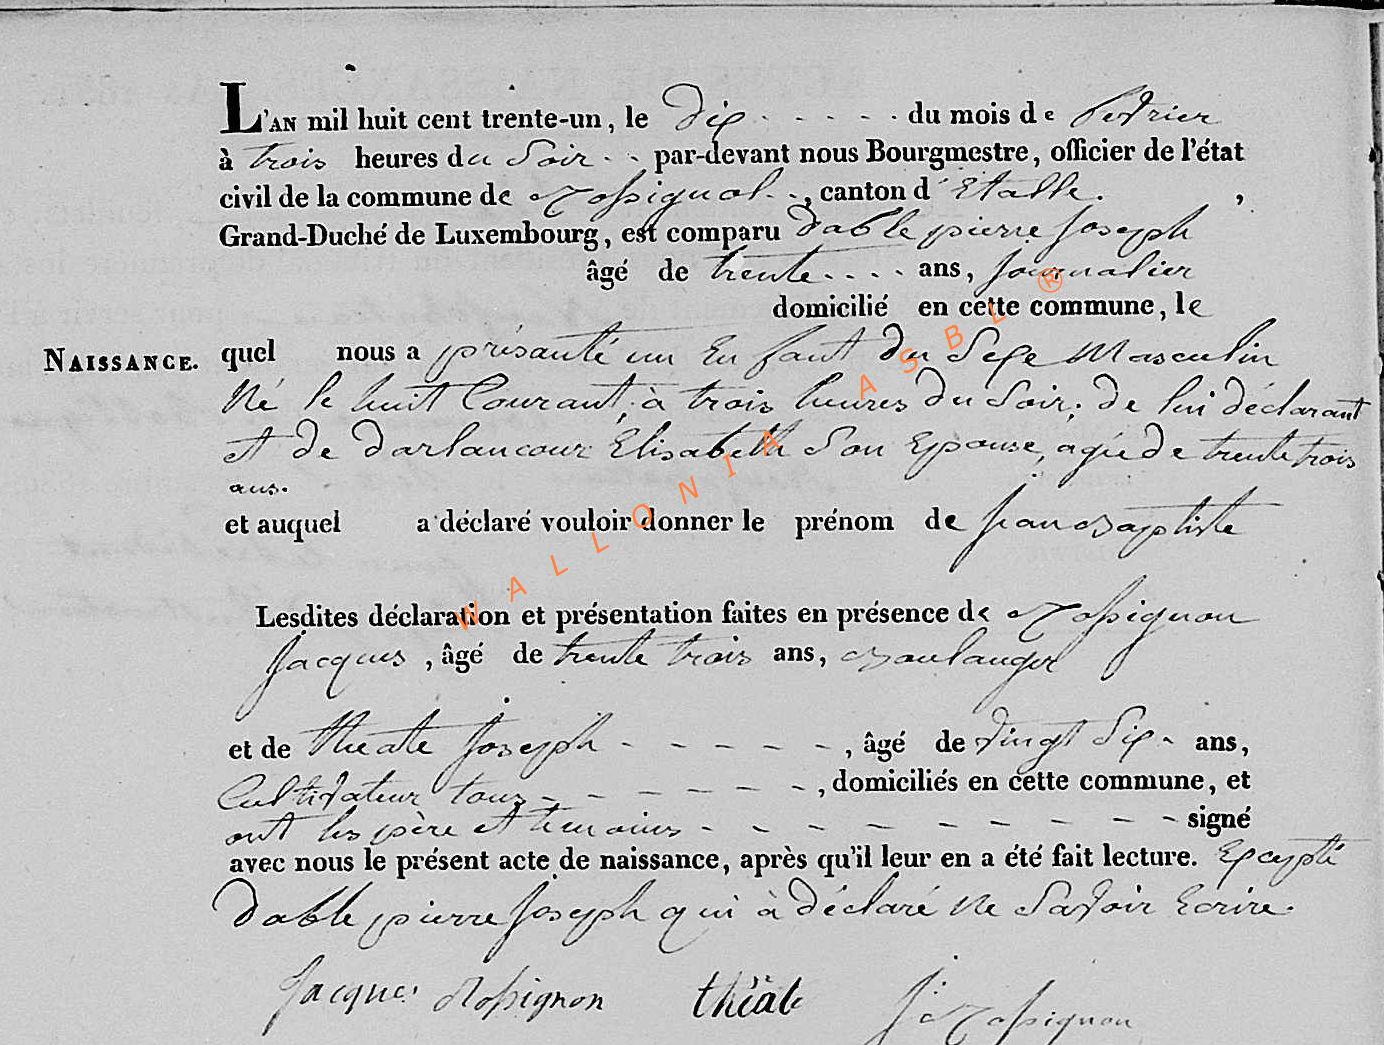 L'AN mil huit cent trente-un, le dix - - - - - du mois de Fevrier
à trois heures du Soir - - par-devant nous Bourgmestre, officier de l'état
civil de la commune de Rossignol - - , canton d' Etalle. ,
Grand-Duché de Luxembourg, est comparu dable pierre Joseph
âgé de trente . . . . ans, journalier
domicilié en cette commune, le
NAISSANCE. quel nous a présanté un En fant du Sexe Masculin
Né le huit Courant, à trois heures du Soir, de lui déclarant
et de darlancour Elisabeth Son Epouse, agée de trente trois
ans.
et auquel a déclaré vouloir donner le prénom de jean Baptiste
Lesdites déclaration et présentation faites en présence de Rossignon
Jacques , âgé de trente trois ans, Boulanger
et de théate Joseph - - - - - , âgé de vingt Six - ans,
Cultivateur tous - - - - - - - , domiciliés en cette commune, et
ont les père et temoins - - - - - - - - - signé
avec nous le présent acte de naissance, après qu'il leur en a été fait lecture. Excepté
dable pierre Joseph qui à déclaré Ne Savoir Ecrire.
Jacques Rossignon théate J. Rossignon
WALLONIA ASBL ®